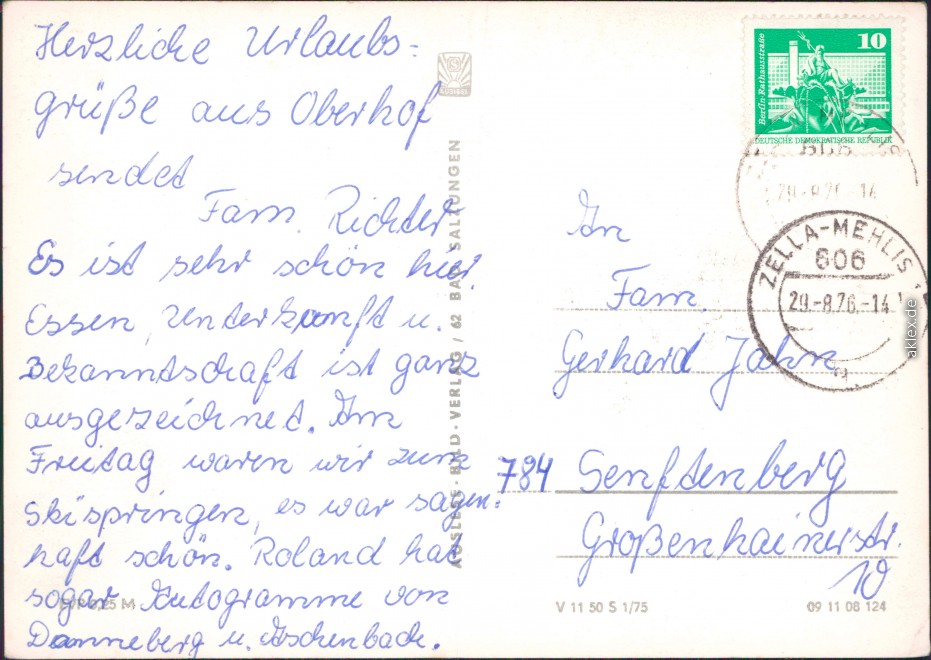 Herzliche Urlaubs-
grüße aus Oberhof
sendet
Fam. Richter
Es ist sehr schön hier
Essen, Unterkunft u.
Bekanntschaft ist ganz
ausgezeichnet. Am
Freitag waren wir zum
Skispringen, es war sagen-
haft schön. Roland hat
sogar Autogramme von
Danneberg u. Aschenbach.
AUSLESE-BILD-VERLAG / 62 BAD SALZUNGEN
Berlin-Rathausstraße
10
DEUTSCHE DEMOKRATISCHE REPUBLIK
29.-8.76.-14
ZELLA-MEHLIS 1
606
29.-8.76.-14
aklex.de
An
Fam.
Gerhard Jahn
784 Senftenberg
Großenhainerstr.
10
V 11 50 S 1/75
09 11 08 124